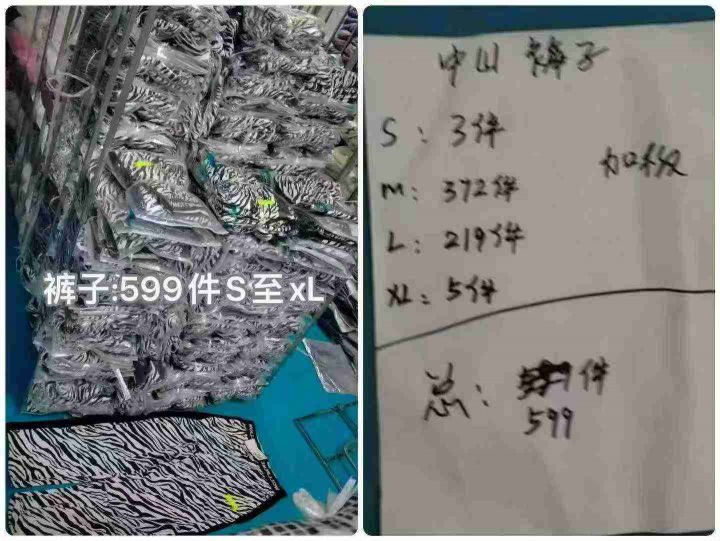 裤子:599件S至xL
中山 裤子
S：3件
加秋
M：372件
L：219件
XL：5件
总：件
599